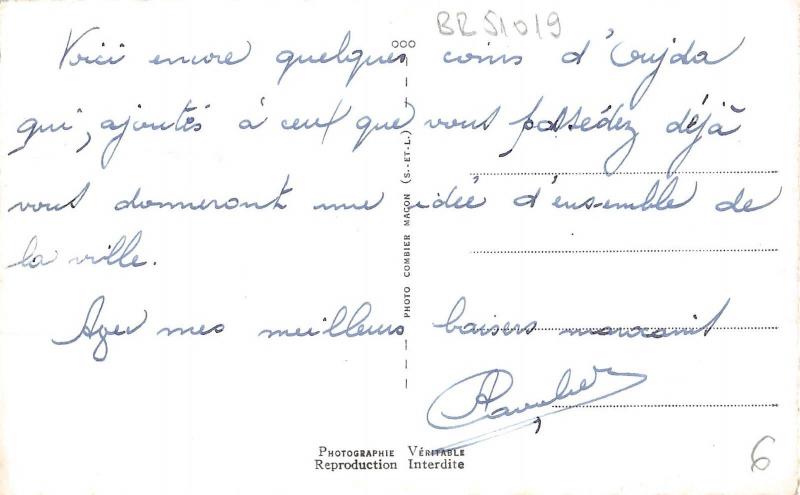 BR51019
Voici encore quelques coins d'Oujda
qui, ajoutés à ceux que vous possédez déjà
vous donneront une idée d'ensemble de
la ville.
Ayez mes meilleurs baisers marocains
PHOTO COMBIER MACON (S.-ET-L.)
PHOTOGRAPHIE VÉRITABLE
Reproduction Interdite
6